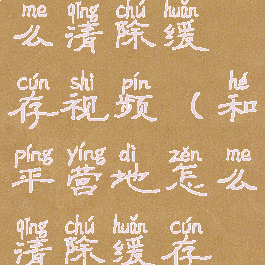 me qīng chú huǎn
么清除缓
cún shì pín hé
存视频（和
píng yíng dì zěn me
平营地怎么
qīng chú huǎn cún
清除缓存